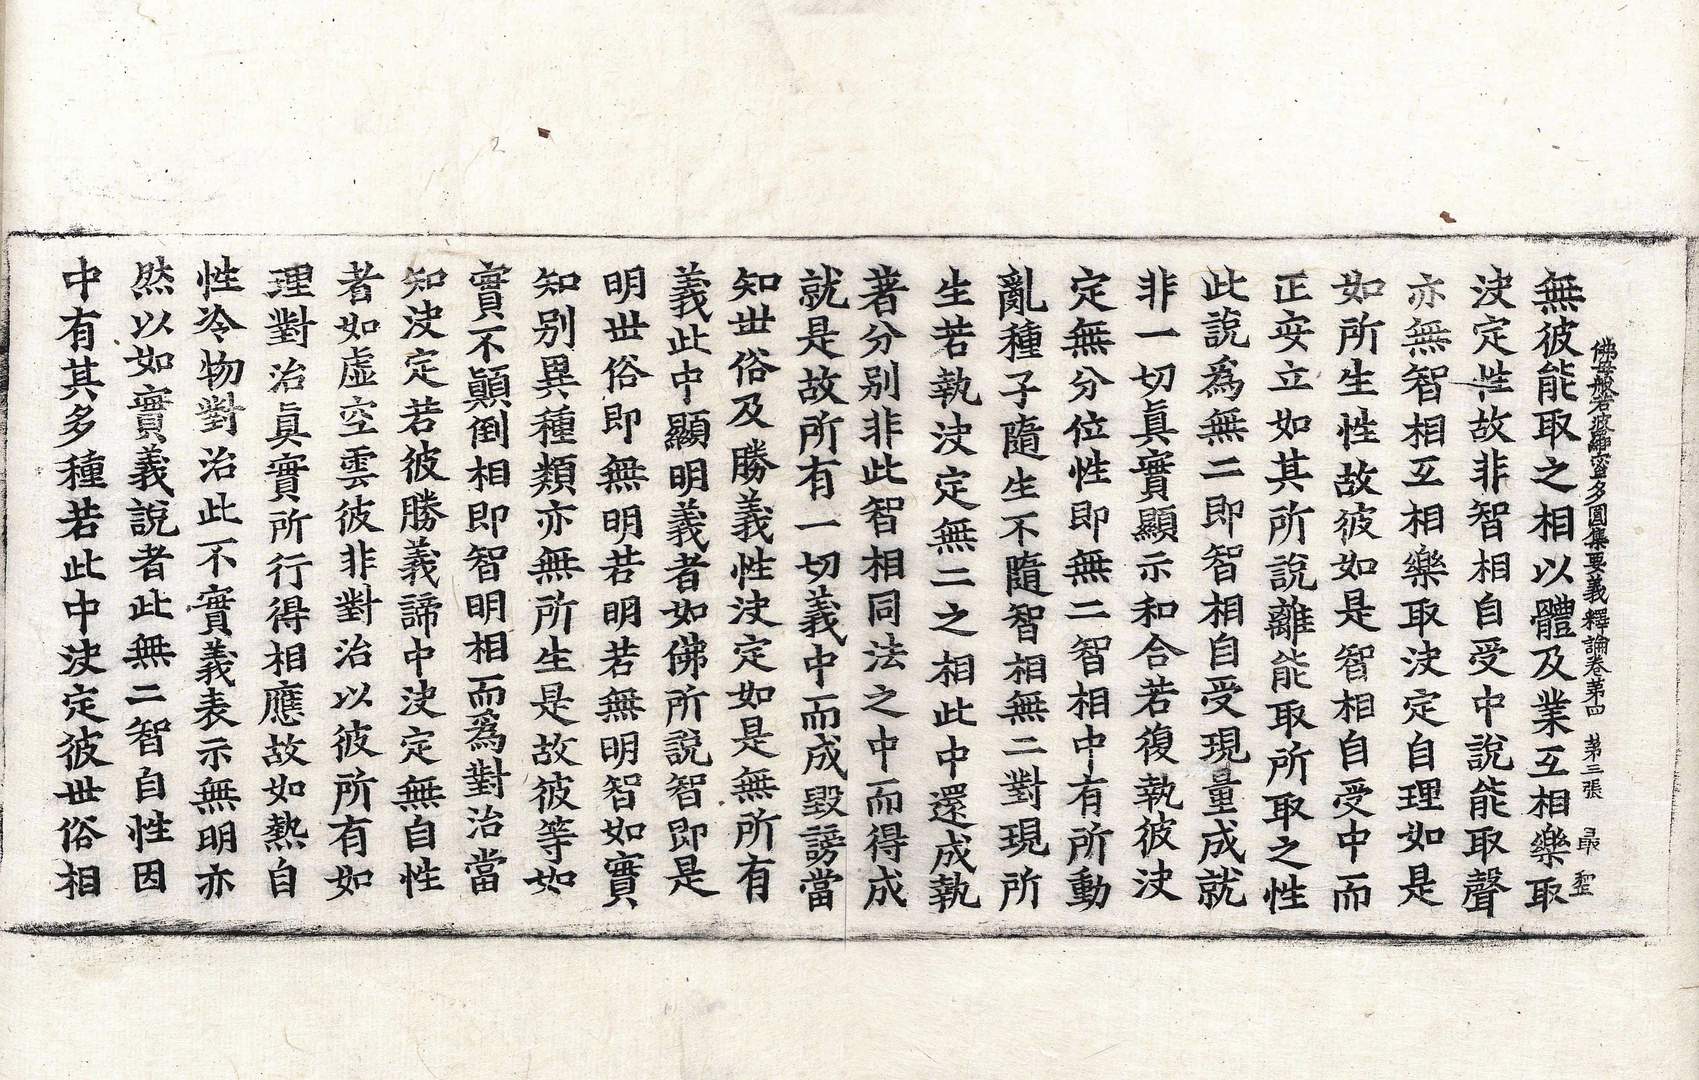 佛母般若波羅蜜多圓集要義釋論卷第四　第三張　聖
無彼能取之相以體及業互相樂取
決定性故非智相自受中說能取聲
亦無智相互相樂取決定自理如是
如所生性故彼如是智相自受中而
正安立如其所說離能取所取之性
此說爲無二即智相自受現量成就
非一切眞實顯示和合若復執彼決
定無分位性即無二智相中有所動
亂種子隨生不隨智相無二對現所
生若執決定無二之相此中還成執
著分別非此智相同法之中而得成
就是故所有一切義中而成毀謗當
知世俗及勝義性決定如是無所有
義此中顯明義者如佛所說智即是
明世俗即無明若明若無明智如實
知別異種類亦無所生是故彼等如
實不顚倒相即智明相而爲對治當
知決定若彼勝義諦中決定無自性
者如虛空雲彼非對治以彼所有如
理對治眞實所行得相應故如熱自
性冷物對治此不實義表示無明亦
然以如實義說者此無二智自性因
中有其多種若此中決定彼世俗相